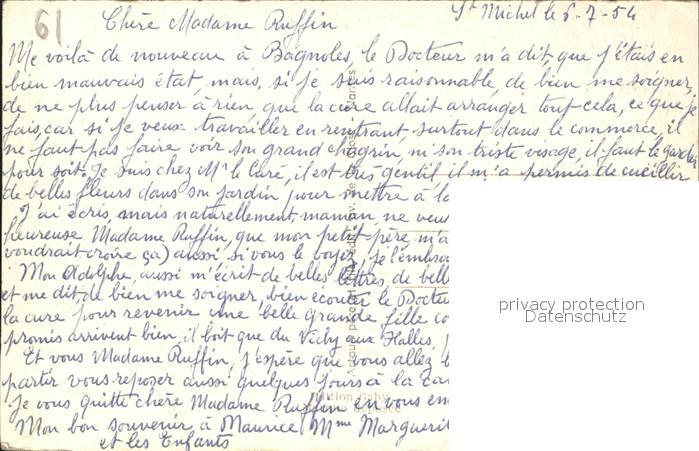 61
St Michel le 6-7-54
Chère Madame Ruffin
Me voilà de nouveau à Bagnoles, le Docteur m'a dit, que j'étais en
bien mauvais état, mais, si je suis raisonnable, de bien me soigner,
de ne plus penser à rien, que la cure allait arranger tout cela, ce que je
fais, car si je veux travailler en rentrant, surtout dans le commerce, il
ne faut pas faire voir son grand chagrin, ni son triste visage, il faut le garder
pour soit. Je suis chez Mr le Curé, il est très gentil il m'a permis de cueillir
de belles fleurs dans son jardin pour mettre à la
J'ai écris, mais naturellement, maman ne veu
heureuse Madame Ruffin, que mon petit père, m'a
voudrait croire ça) aussi, si vous le voyez, je l'embras
Mon Adolphe, aussi m'écrit de belles lettres, de bell
et me dit, de bien me soigner, bien écouter le Docteu
la cure pour revenir une belle grande fille co
promis arrivent bien, il boit que du Vichy aux Halles,
Et vous Madame Ruffin, j'espère que vous allez b
partir vous reposer aussi quelques jours à la ca
Je vous quitte chère Madame Ruffin en vous em
Mon bon souvenir à Maurice, Mme Marguerit
et les Enfants
privacy protection
Datenschutz